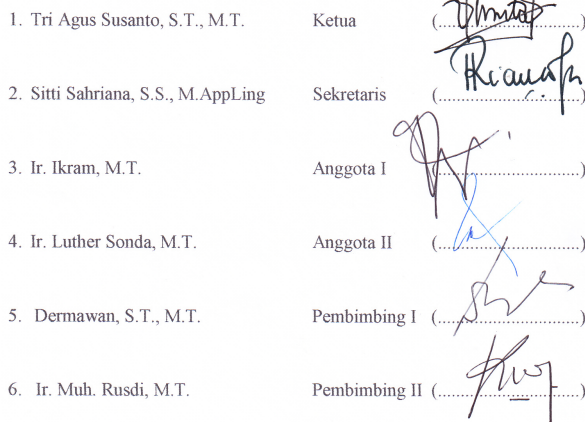 1. Tri Agus Susanto, S.T., M.T. Ketua (....................)
2. Sitti Sahriana, S.S., M.AppLing Sekretaris (....................)
3. Ir. Ikram, M.T. Anggota I (....................)
4. Ir. Luther Sonda, M.T. Anggota II (....................)
5. Dermawan, S.T., M.T. Pembimbing I (....................)
6. Ir. Muh. Rusdi, M.T. Pembimbing II (....................)